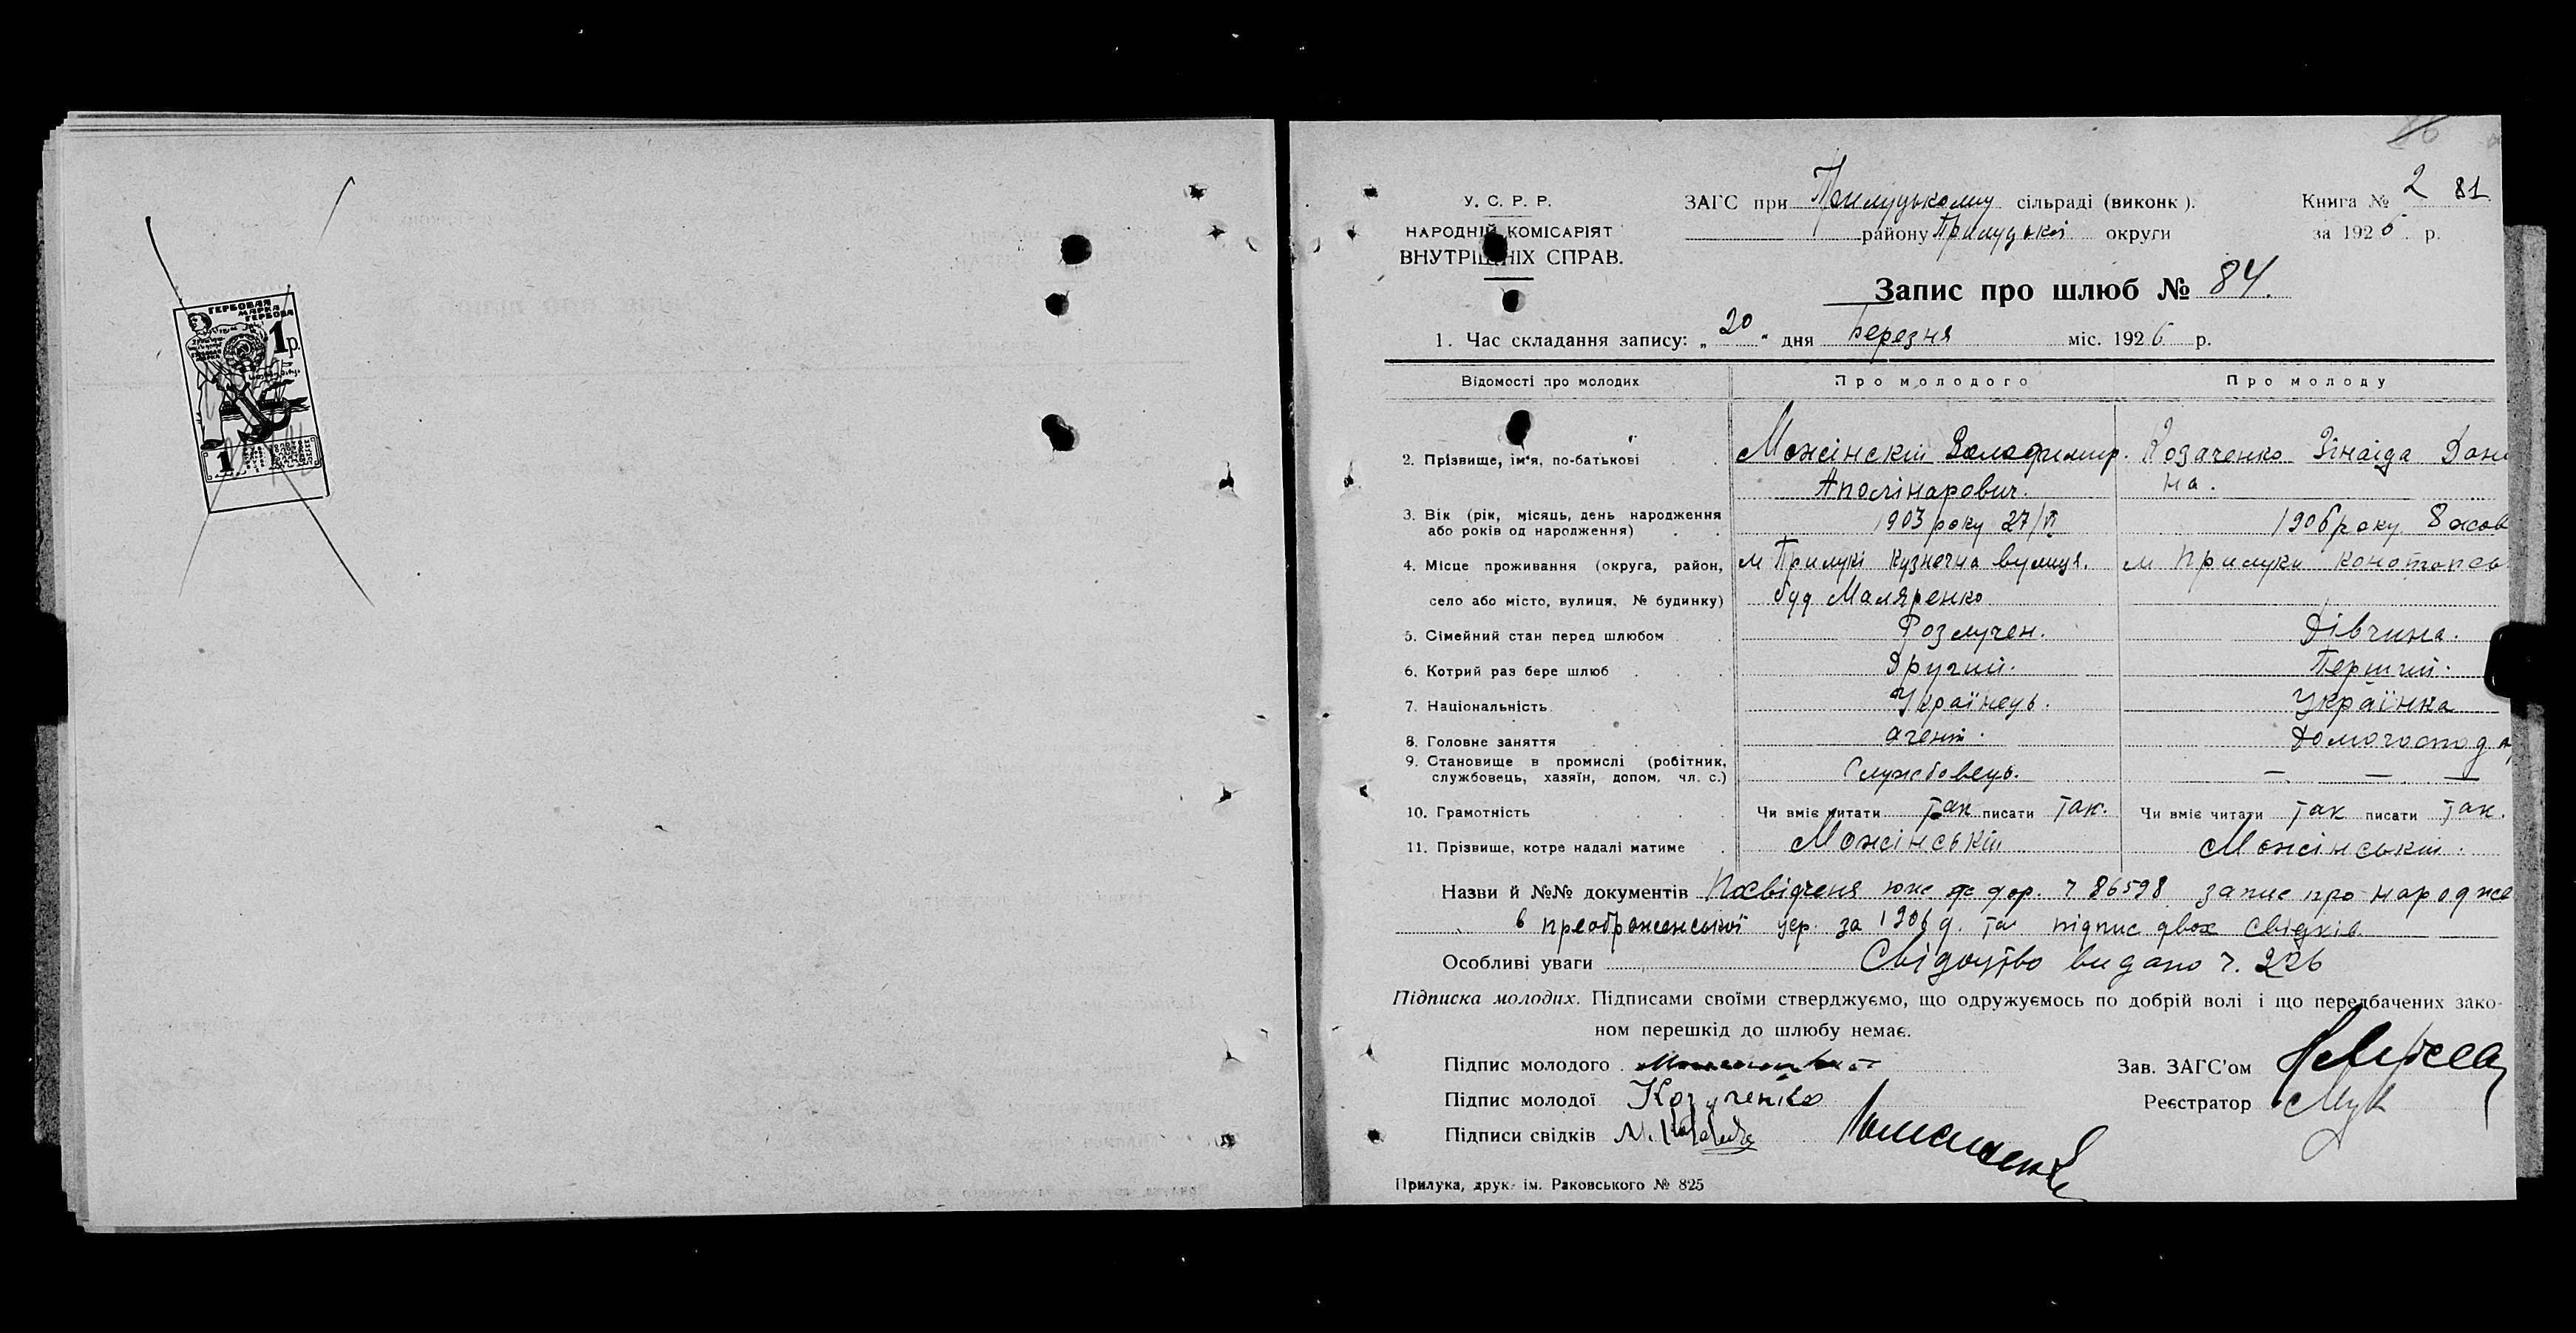 ГЕРБОВАЯ
МАРКА
ГЕРБОВА
1 р.
1
86
У. С. Р. Р.
НАРОДНІЙ КОМІСАРІЯТ
ВНУТРІШНІХ СПРАВ.
ЗАГС при Прилуцькому сільраді (виконк).
району Прилуцької округи
Книга № 2 81
за 1926 р.
Запис про шлюб № 84.
1. Час складання запису: „20" дня березня міс. 1926 р.
Відомості про молодих Про молодого Про молоду
2. Прізвище, ім'я, по-батькові Можінскій Володимир Козаченко Зінаїда Дани
Аполінарович. на.
3. Вік (рік, місяць, день народження
або років од народження) 1903 року 27/VI 1906 року 8 жов
4. Місце проживання (округа, район, м Прилукі Кузнечна вулиця. м Прилуки конотопсь
село або місто, вулиця, № будинку) буд Маляренко
5. Сімейний стан перед шлюбом Розлучен. Дівчина.
6. Котрий раз бере шлюб Другий. Перший.
7. Національність Українець. Українка
8. Головне заняття агент. Домогоспода
9. Становище в промислі (робітник,
службовець, хазяїн, допом. чл. с.) Службовець. — — —
10. Грамотність Чи вміє читати так писати так. Чи вміє читати так писати так.
11. Прізвище, котре надалі матиме Можінській Можінській.
Назви й №№ документів Посвідченя юж дор. ч 86598 запис про народже
в преображенської цер. за 1906 р. та підпис двох свідків
Особливі уваги Свідоцтво видано ч. 226
Підписка молодих. Підписами своїми стверджуємо, що одружуємось по добрій волі і що передбачених зако-
ном перешкід до шлюбу немає.
Підпис молодого
Підпис молодої Козаченко
Підписи свідків
Зав. ЗАГС'ом
Реєстратор
Прилука, друк. ім. Раковського № 825